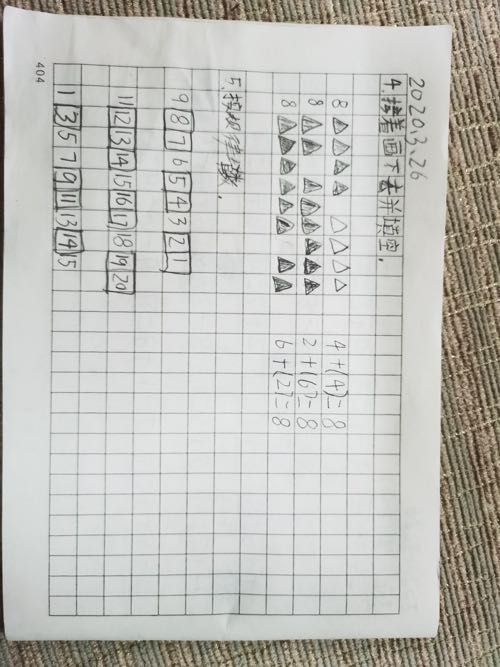 2020.3.26
4.接着画下去并填空.
8 4+(4)=8
8 2+(6)=8
8 6+(2)=8
5.按规律填数.
9 8 7 6 5 4 3 2 1
11 12 13 14 15 16 17 18 19 20
1 3 5 7 9 11 13 14 5
404